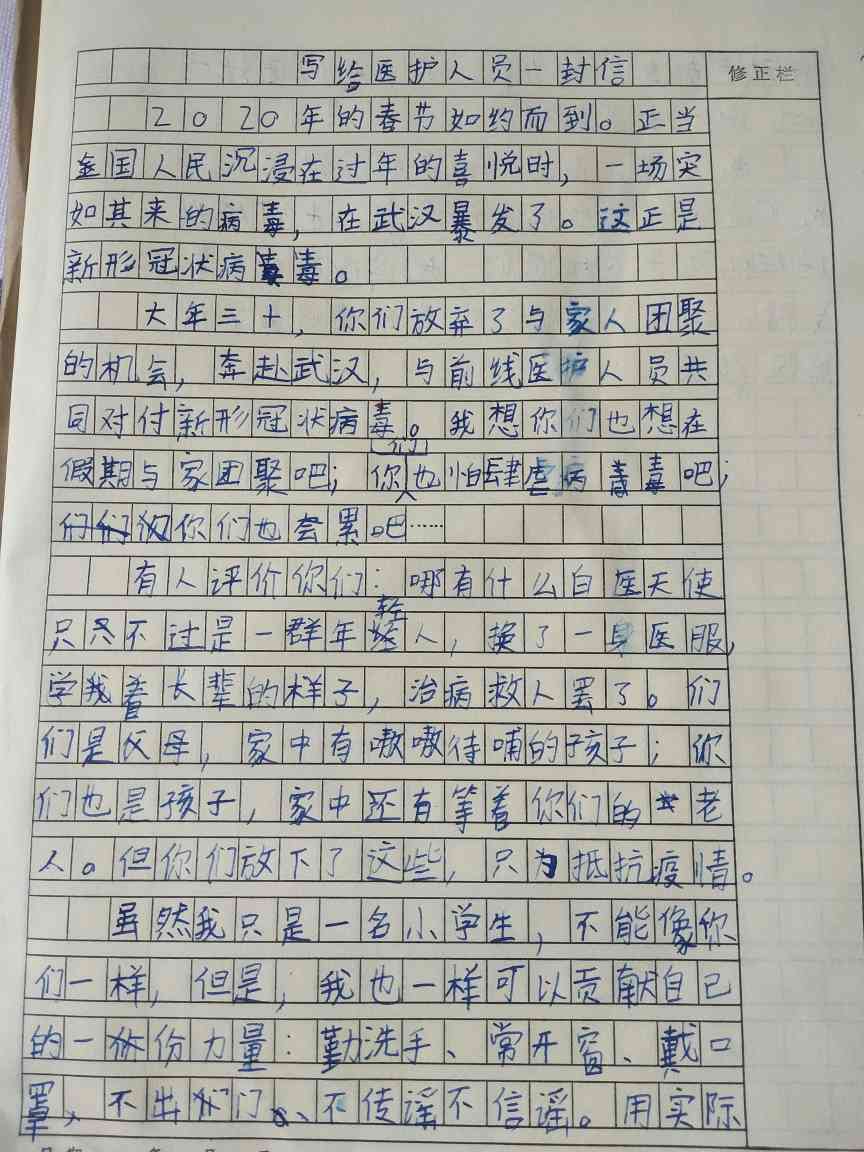 写给医护人员一封信
修正栏
2020年的春节如约而到。正当
全国人民沉浸在过年的喜悦时，一场突
如其来的病毒，在武汉暴发了。这正是
新形冠状病毒。
大年三十，你们放弃了与家人团聚
的机会，奔赴武汉，与前线医护人员共
同对付新形冠状病毒。我想你们也想在
假期与家团聚吧；你们也怕肆虐病毒吧；
你们也会累吧……
有人评价你们：哪有什么白医天使
只不过是一群年轻人，换了一身医服，
学我着长辈的样子，治病救人罢了。们
们是父母，家中有嗷嗷待哺的孩子；你
们也是孩子，家中还有等着你们的老
人。但你们放下了这些，只为抵抗疫情。
虽然我只是一名小学生，不能像你
们一样，但是，我也一样可以贡献自已
的一份力量：勤洗手、常开窗、戴口
罩、不出门、不传谣不信谣。用实际